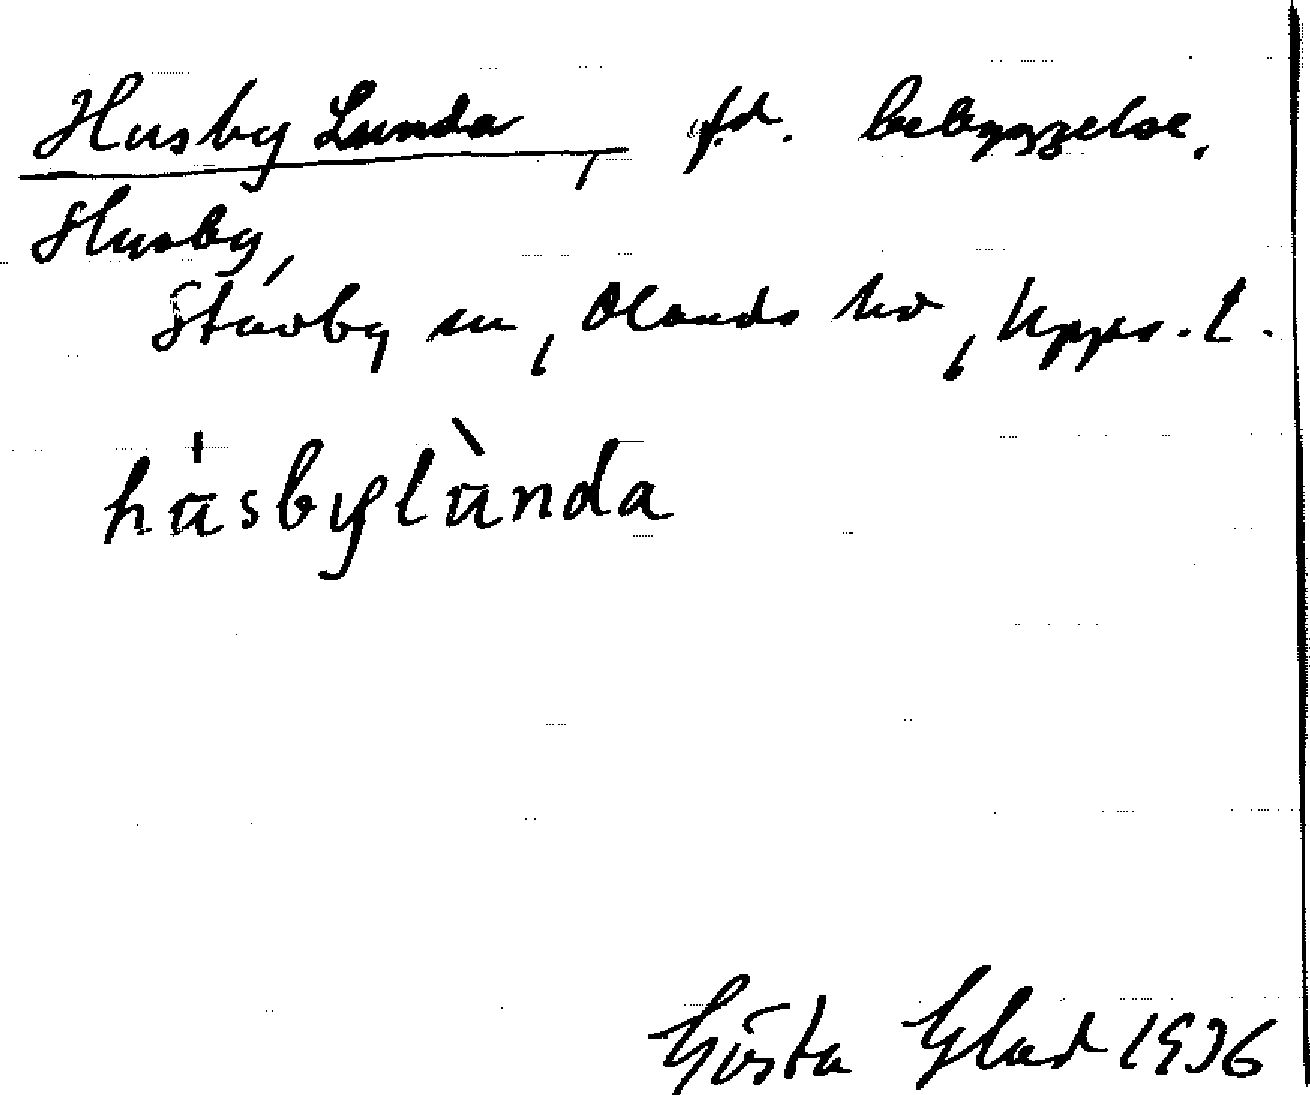 Husby Lunda, fd. bebyggelse.
Husby,
Stavby sn, Olands hd, Upps. l.
húsbylùnda
Gösta Glad 1936